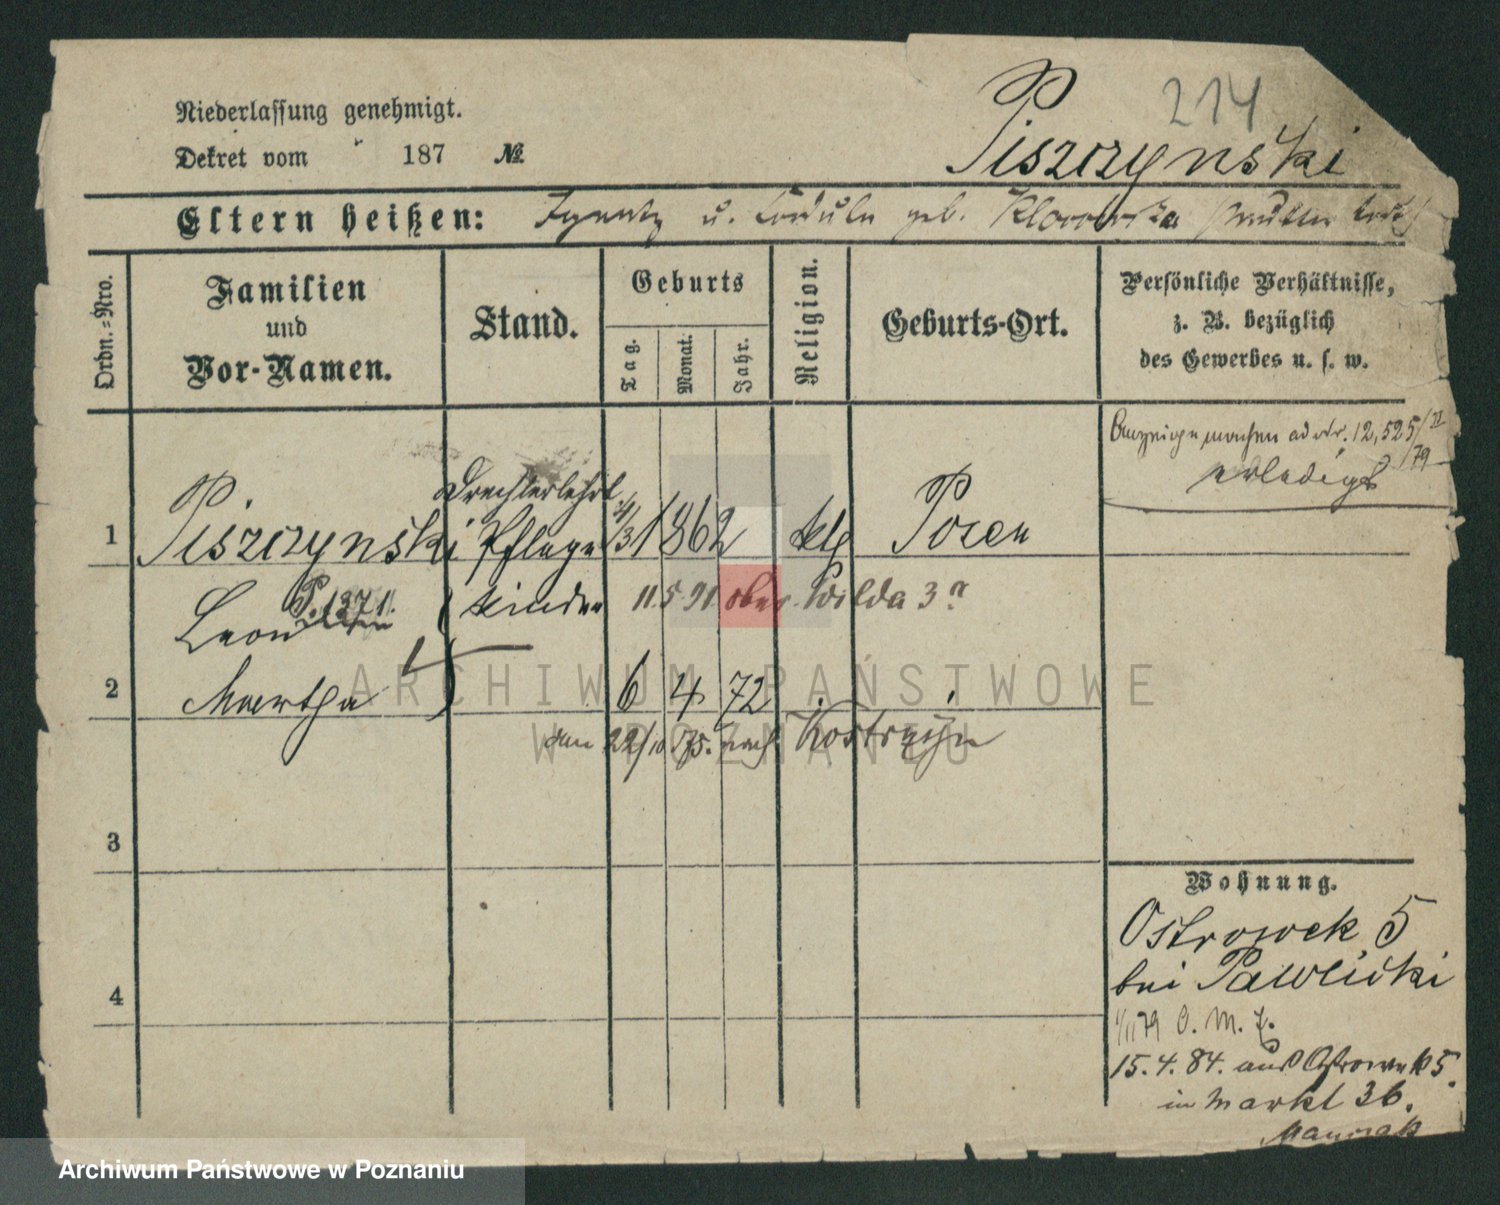 Niederlassung genehmigt.
Dekret vom 187 №
214
Piszczynski
Eltern heißen: Ignatz u. Cordula geb. (Mutter todt)
Ordn.-Nro.
Familien
und
Vor-Namen.
Stand.
Geburts
Tag.
Monat.
Jahr.
Religion.
Geburts-Ort.
Persönliche Verhältnisse,
z. B. bezüglich
des Gewerbes u. s. w.
ad nr. 12,525/II
/79
erledigt
Drechslerlehrl.
1 Piszczynski Pflege 4/3 1862 kth Posen
Leon P. 1371. kinder 11.5.91 ober Wilda 3a
2 Martha 6 4 72
am 22/10 75. nach Kostrzyn
3
4
Wohnung.
Ostrowek 5
bei Pawlicki
1/11 79 O. M. 7.
15.4.84. aus Ostrowek 5.
in Markt 36.
ARCHIWUM PAŃSTWOWE
W POZNANIU
Archiwum Państwowe w Poznaniu